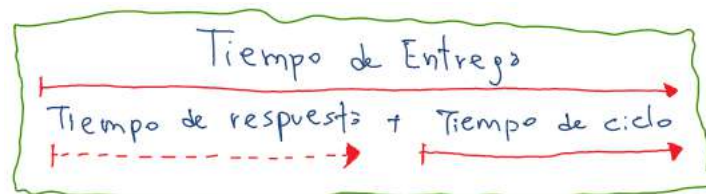 Tiempo de Entrega
Tiempo de respuesta + Tiempo de ciclo